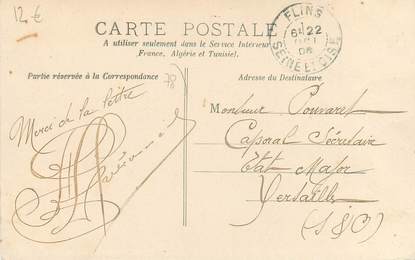 12 €
CARTE POSTALE
A utiliser seulement dans le Service Intérieur
(France, Algérie et Tunisie).
FLINS
6E 22
06
SEINE ET OISE
Partie réservée à la Correspondance
78
Adresse du Destinataire
Merci de la lettre
Monsieur Pouvaret
Caporal Secrétaire
Etat Major
Versailles
(S&O)